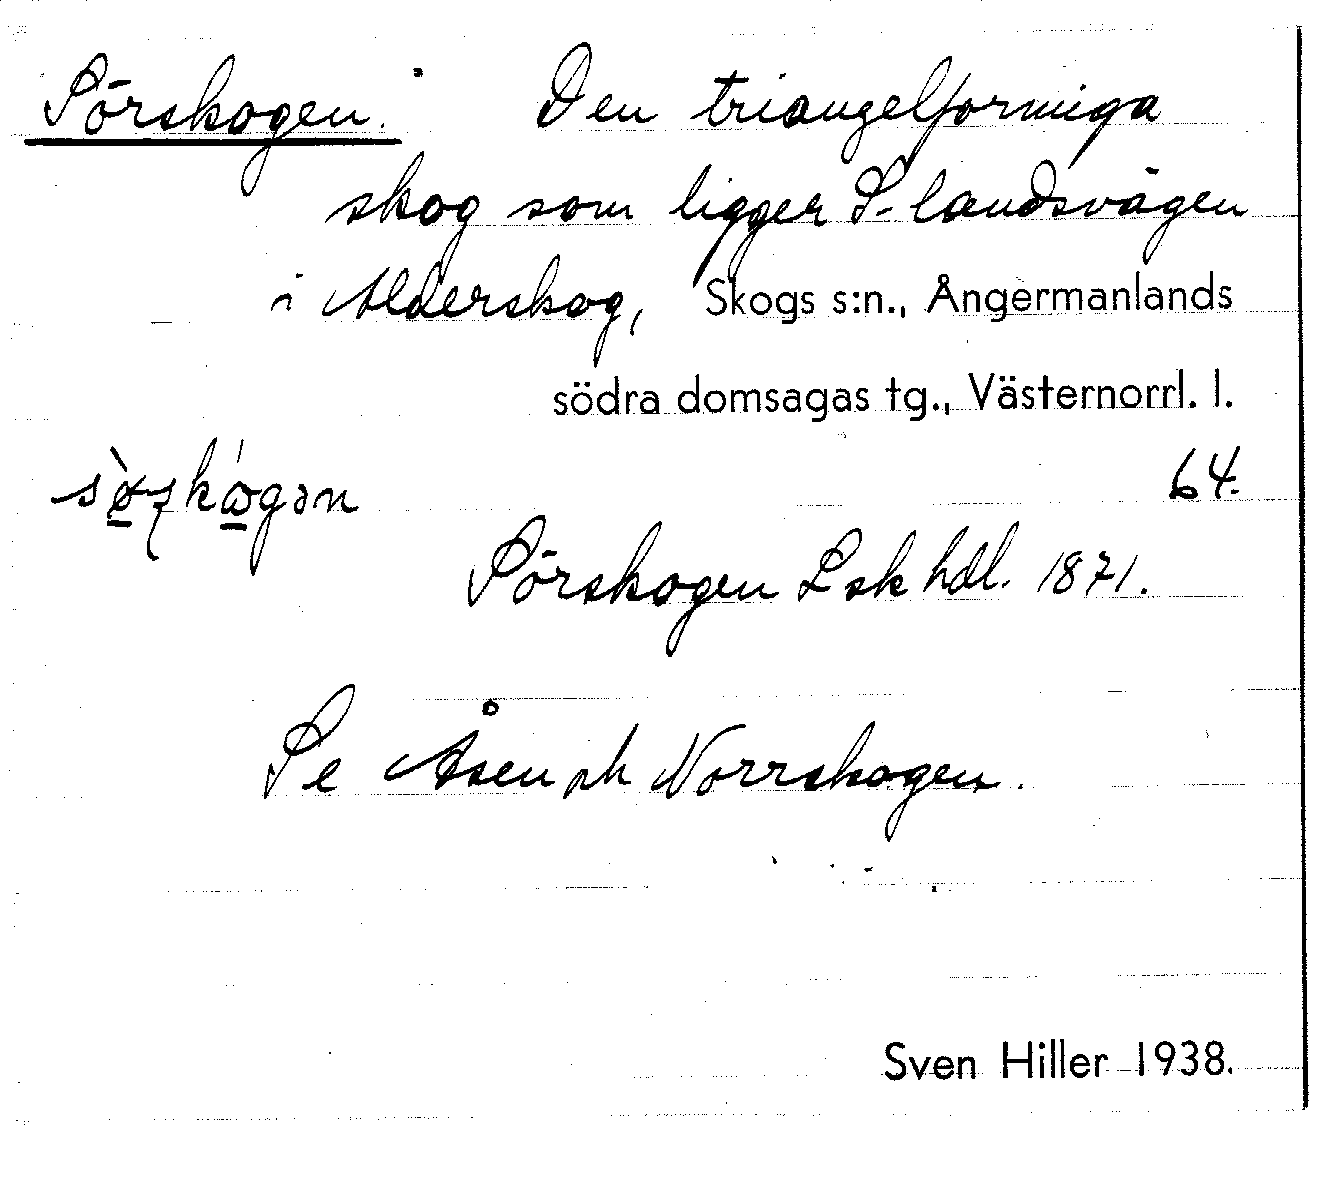 Sörskogen. Den triangelformiga
skog som ligger S. landsvägen
i Alderskog, Skogs s:n., Ångermanlands
södra domsagas tg., Västernorrl. l.
64.
Sörskogen Lsk hdl. 1871.
Se Åsen och Norrskogen.
Sven Hiller 1938.